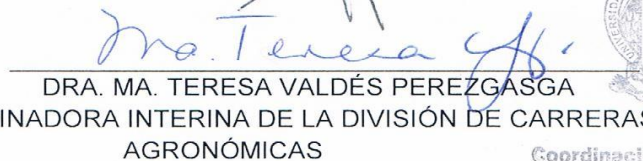 Ma. Teresa
DRA. MA. TERESA VALDÉS PEREZGASGA
INADORA INTERINA DE LA DIVISIÓN DE CARRERAS
AGRONÓMICAS
Coordinaci